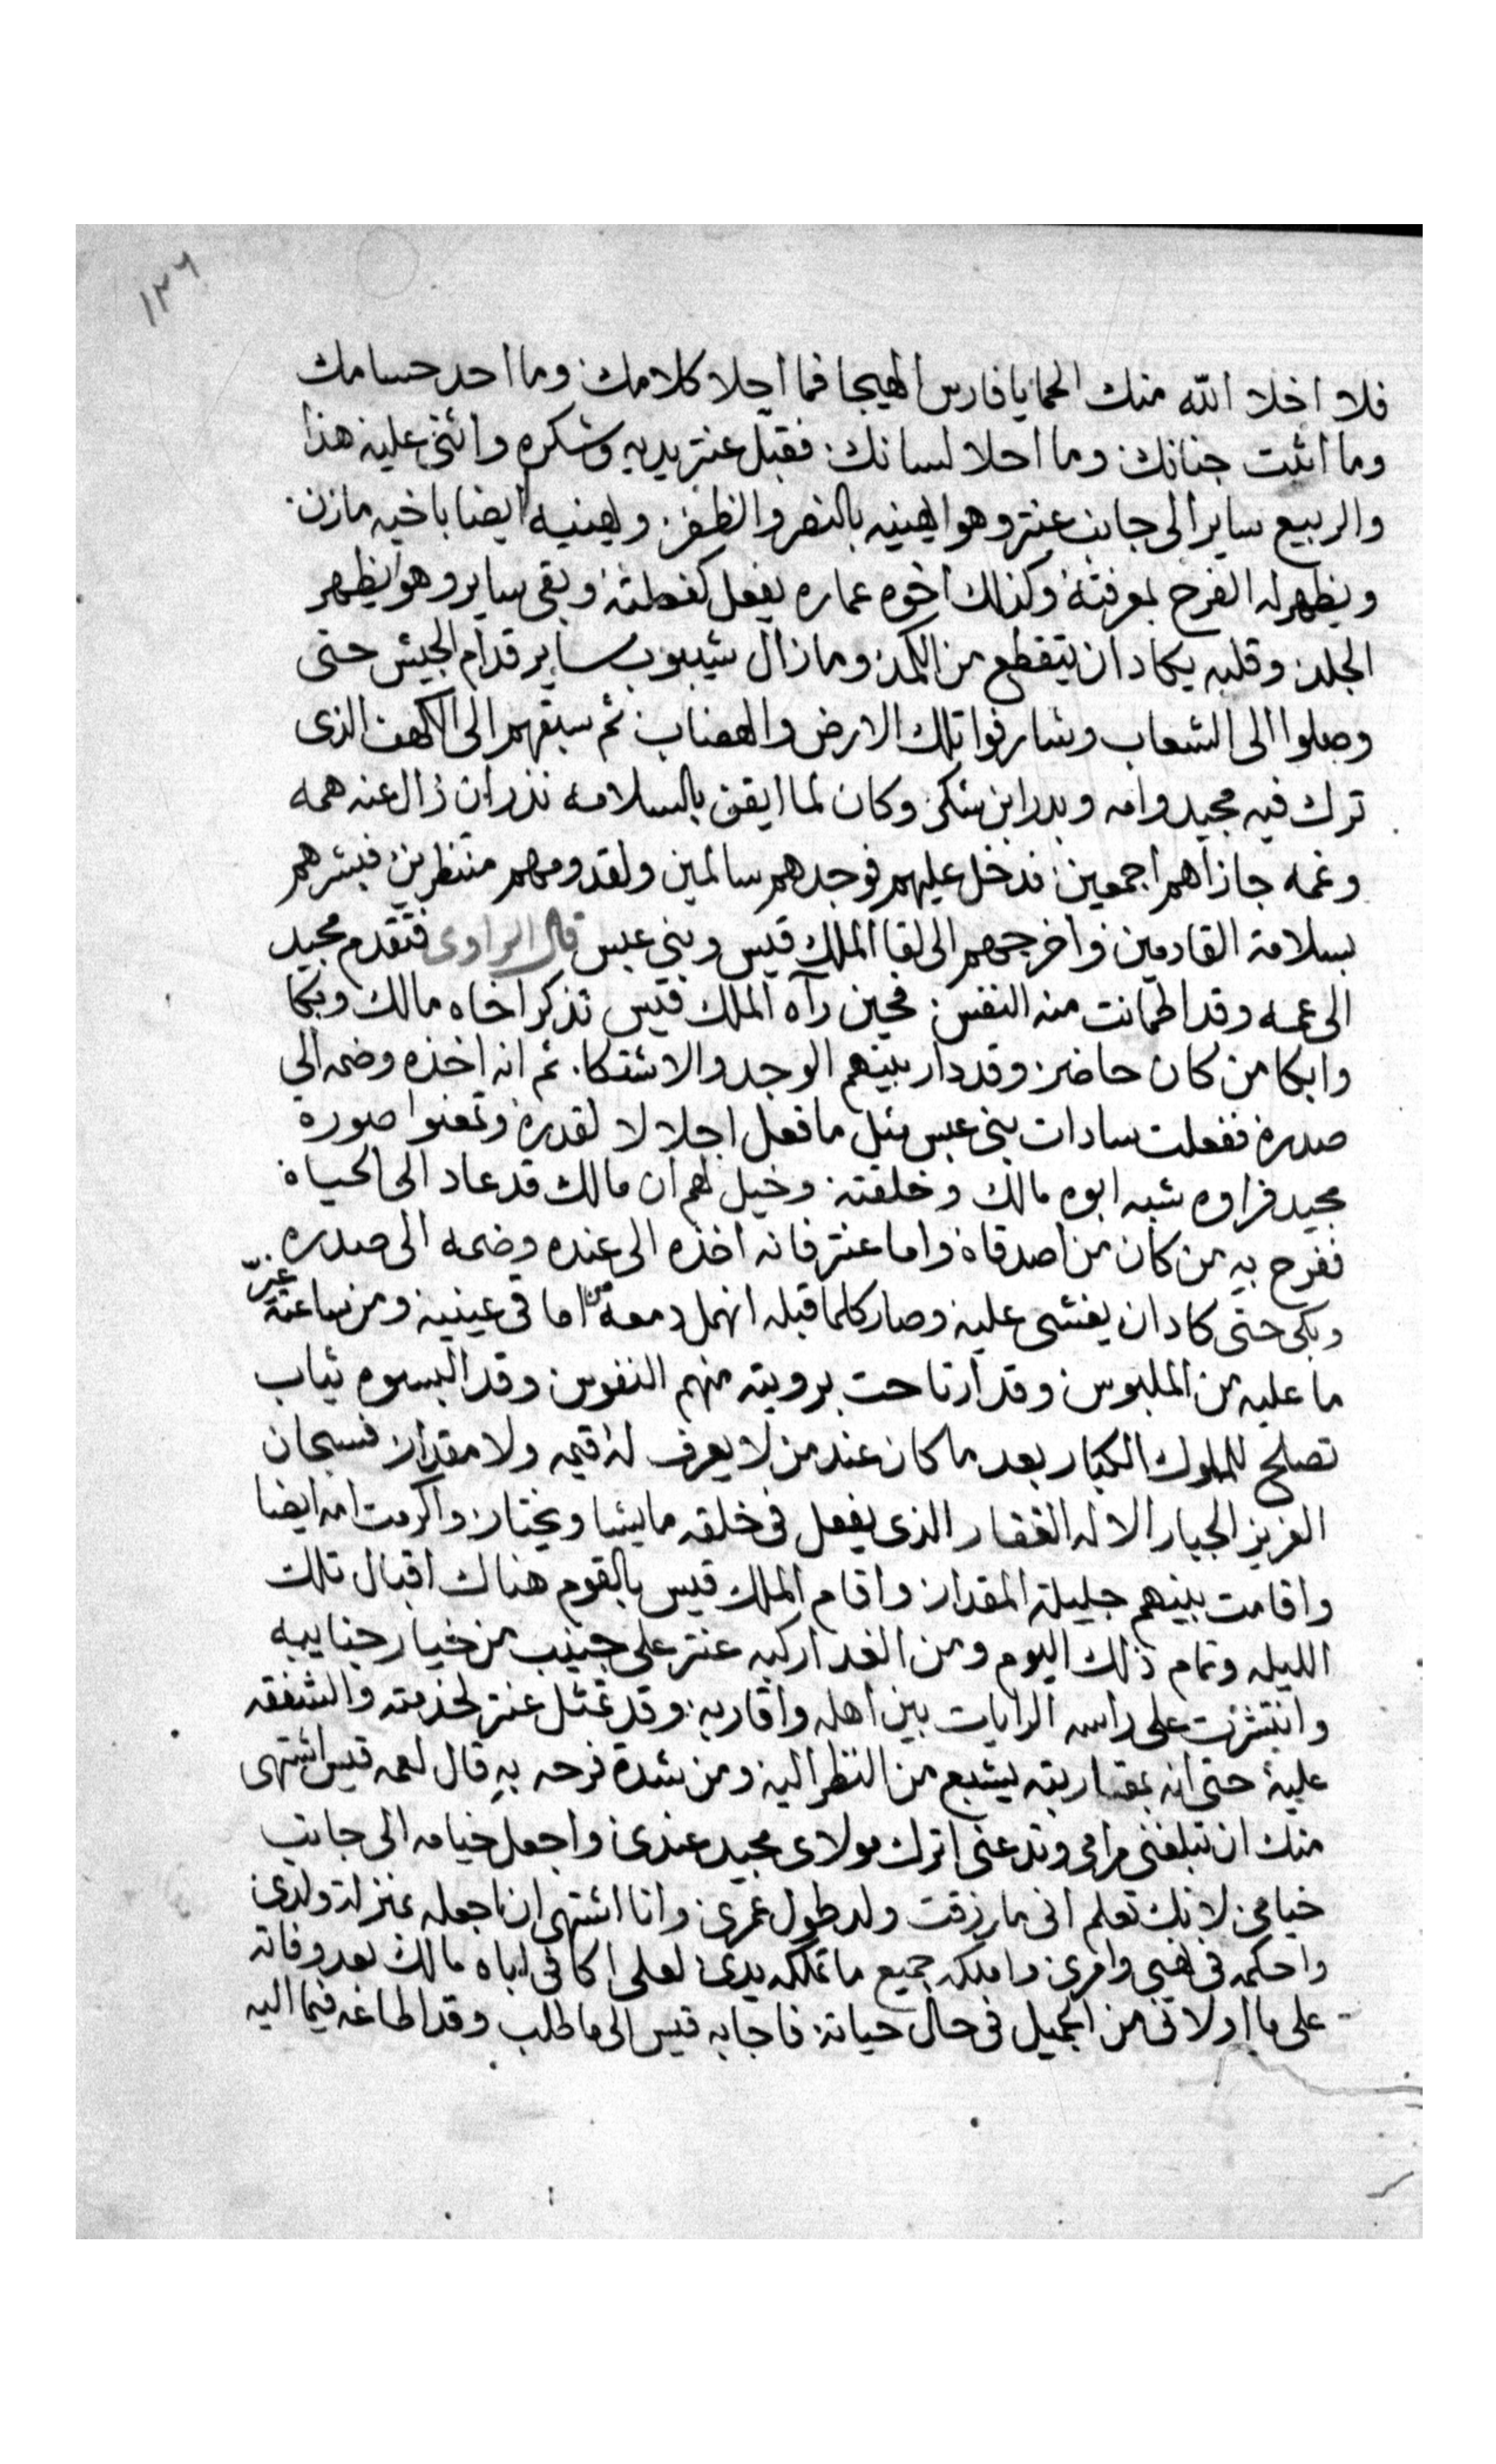 ١٢٦
فلا اخلا الله منك الحما يا فارس الهيجا فما أحلا كلامك. وما احد حسامك
وما اثبت جنانك. وما احلا لسانك. فقبل عنتر يديه وشكره واثنى عليه هذا
والربيع ساير الى جانب عنتر وهو يهنيه بالنصر والظفر. ويهنيه ايضا باخيه مازن.
ويظهر له الفرح بمرفته وكذلك اخوه عماره يفعل كفعلته وبقى ساير وهو يظهر
الجلد. وقلبه يكاد ان يتقطع من الكمد. وما زال شيبوب ساير قدام الجيش حتى
وصلوا الى الشعاب وشارفوا تلك الارض والهضاب. ثم سبقهم الى الكهف الذى
ترك فيه مجيد وامه وبدر ابن شكر. وكان لما ايقن بالسلامه نذر ان زال عنه همه
وغمه جازاهم اجمعين. فدخل عليهم فوجدهم سالمين ولقدومهم منتظرين فبشرهم
بسلامة القادمين واخرجهم الى لقا الملك قيس وبنى عبس قال الراوى فتقدم مجيد
الى عمه وقد اطمانت منه النفس. فحين رآه الملك قيس تذكر اخاه مالك وبكا
وابكا من كان حاضر. وقد دار بينهم الوجد والاشتكا. ثم انه اخذه وضمه الي
صدره ففعلت سادات بنى عبس مثل ما فعل اجلالا لقدره وتمعنوا صورة
مجيد فراوه شبه ابوه مالك وخلقته. وخيل لهم ان مالك قد عاد الى الحياة
ففرح به من كان من اصدقاة واما عنتر فانه اخذه الى عنده وضمه الى صدره
وبكى حتى كاد ان يغشى عليه وصار كلما قبله انهمل دمعه من اماقى عينيه ومن ساعته غيّر
ما عليه من الملبوس وقد ارتاحت برويته منهم النفوس وقد البسوه ثياب
تصلح للملوك الكبار بعد ما كان عند من لا يعرف له قيمه ولا مقدار فسبحان
العزيز الجبار الاله الغفار الذى يفعل فى خلقه ما يشا ويختار. واكرمت امه ايضا
واقامت بينهم جليلة المقدار واقام الملك قيس بالقوم هناك اقبال تلك
الليله وتمام ذلك اليوم ومن الغد اركبه عنتر على جنيب من خيار جنايبه
وانتشرت على راسه الرايات بين اهله واقاربه. وقد تمثل عنتر لخدمته والشفقه
عليه حتى انه بمقاربته يشبع من النظر اليه ومن شدة فرحه به قال لعمه قيس اشتهى
منك ان تبلغنى مرامى وتدعنى اترك مولاى مجيد عندى واجعل خيامه الى جانب
خيامى. لانك تعلم انى ما رزقت ولد طول عمرى. وانا اشتهى ان اجعله بمنزلة ولدى
واحكمه فى نهيى وامرى واملكه جميع ما تملكه يدى لعلى اكافى اباه مالك بعد وفاته
على ما اولانى من الجميل فى حال حياته. فاجابه قيس الى ما طلب وقد اطاعه فيما اليه